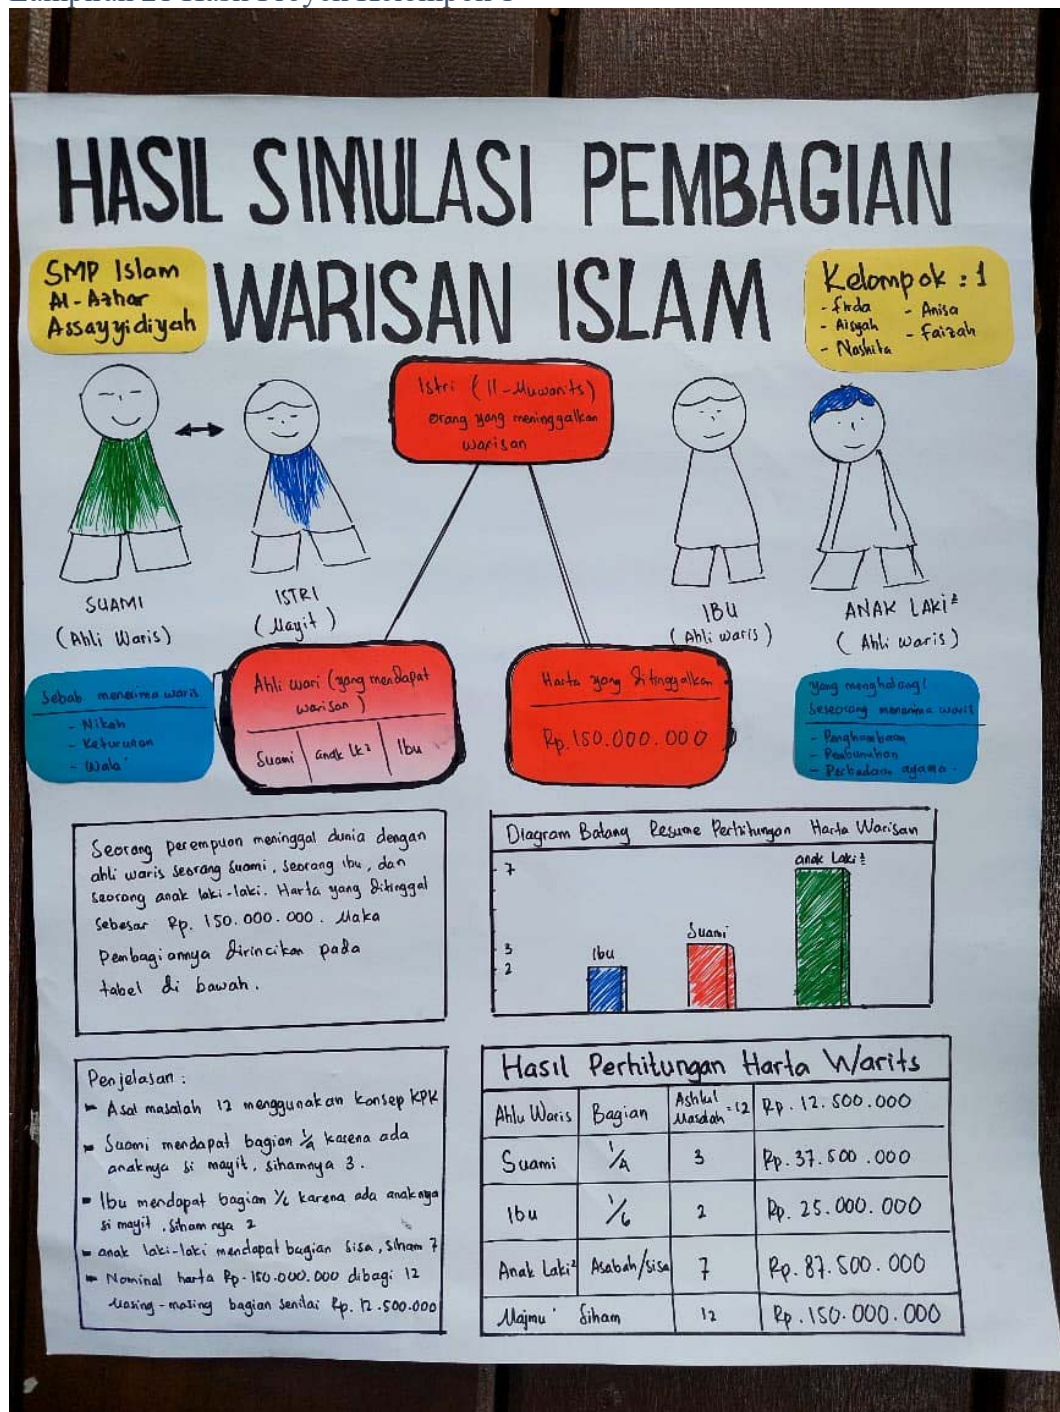 HASIL SIMULASI PEMBAGIAN
WARISAN ISLAM
SMP Islam
Al-Azhar
Assayyidiyah
Kelompok : 1
- Firda
- Aisyah
- Nashita
- Anisa
- Faizah
Istri (Il-Muwarits)
orang yang meninggalkan
warisan
SUAMI
(Ahli Waris)
ISTRI
(Mayit)
IBU
(Ahli waris)
ANAK LAKI²
(Ahli waris)
Sebab menerima waris
- Nikah
- Keturunan
- Wala'
Ahli wari (yang mendapat
warisan)
Suami
anak lk²
Ibu
Harta yang ditinggalkan
Rp. 150.000.000
yang menghalangi
seseorang menerima waris
- Penghambaan
- Pembunuhan
- Perbedaan agama
Seorang perempuan meninggal dunia dengan
ahli waris seorang suami, seorang ibu, dan
seorang anak laki-laki. Harta yang ditinggal
sebesar Rp. 150.000.000. Maka
Pembagiannya dirincikan pada
tabel di bawah.
Diagram Batang Resume Perhitungan Harta Warisan
7
3
2
Ibu
Suami
anak Laki²
Penjelasan :
- Asal masalah 12 menggunakan konsep KPK
- Suami mendapat bagian 1/4 karena ada
anaknya si mayit, sihamnya 3.
- Ibu mendapat bagian 1/6 karena ada anaknya
si mayit, siham nya 2
- anak laki-laki mendapat bagian sisa, siham 7
- Nominal harta Rp. 150.000.000 dibagi 12
Masing-masing bagian senilai Rp. 12.500.000
Hasil Perhitungan Harta Warits
Ahlu Waris Bagian = 12 Rp. 12.500.000
Suami 1/4 3 Rp. 37.500.000
Ibu 1/6 2 Rp. 25.000.000
Anak Laki² Asabah/sisa 7 Rp. 87.500.000
Majmu' Siham 12 Rp. 150.000.000